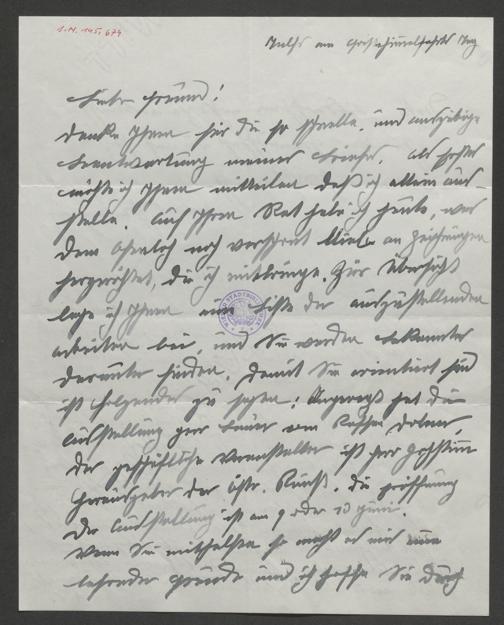 I.N. 205.679
am Christihimmelfahrts Tag
Lieber Freund!
Danke Ihnen für die so schnelle, und ausgiebige
Beantwortung meines Briefes. Als erstes
möchte ich Ihnen mitteilen daß ich allein aus
stelle. Auf Ihren Rat habe ich heute, was
noch verschont blieb an Zeichnungen
hergerichtet, die ich mitbringe. Zur Übersicht
lege ich Ihnen eine Liste der auszustellenden
Arbeiten bei, und Sie werden bekannte
darunter finden. Damit Sie orientiert sind
ist folgendes zu sagen: Angeregt hat die
Ausstellung Herr Bauer vom
Der geschäftliche Veranstalter ist Herr
Herausgeber der Östr. Kunst. Die Eröffnung
der Ausstellung ist am 9 oder 10 Juni.
Wenn Sie mithelfen so macht es mir eine
Freude und ich hoffe Sie durch